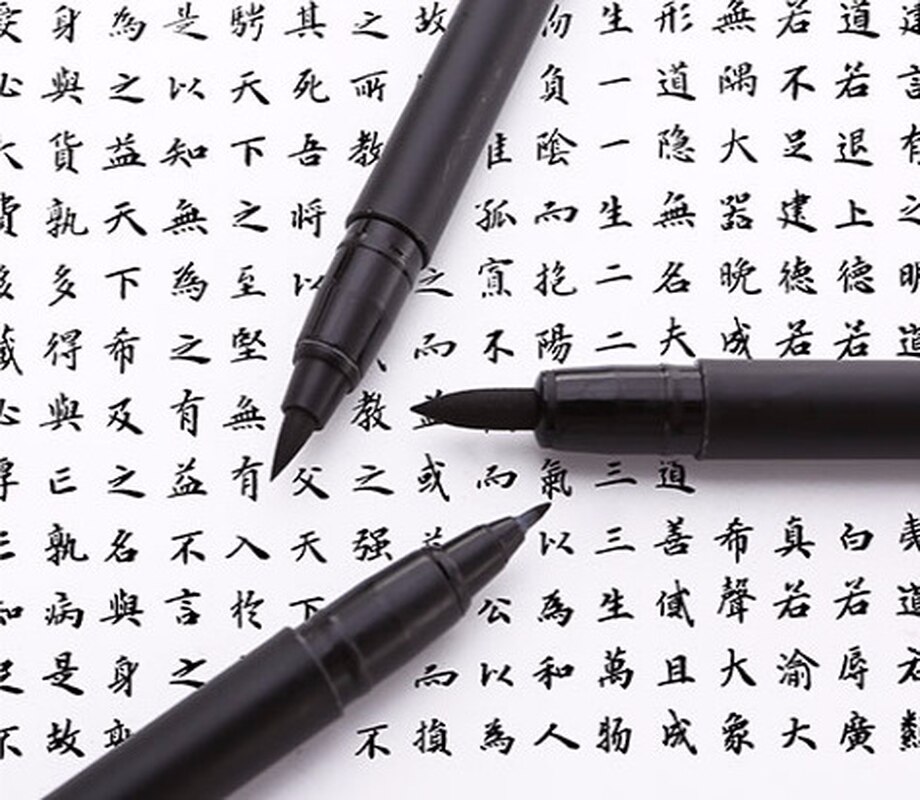 建言有之明道夷道若纇
道若退上德若白若辱廣
若不足建德若真若渝大
無隅大器晚成希聲大象
形道隐無名夫道善貸且成
生一一生二二三三生萬物
負陰而抱陽氣以為和人
孤寡不而公以為
故之而益或益而損
之所教教之强不
其死吾將以父天下
騁天下之至堅無有入於
是以知無為之有益不言之
為之益天下希及之名與身孰
身與貨孰多得與亡孰病是故
愛必大費多藏必厚亡知足不